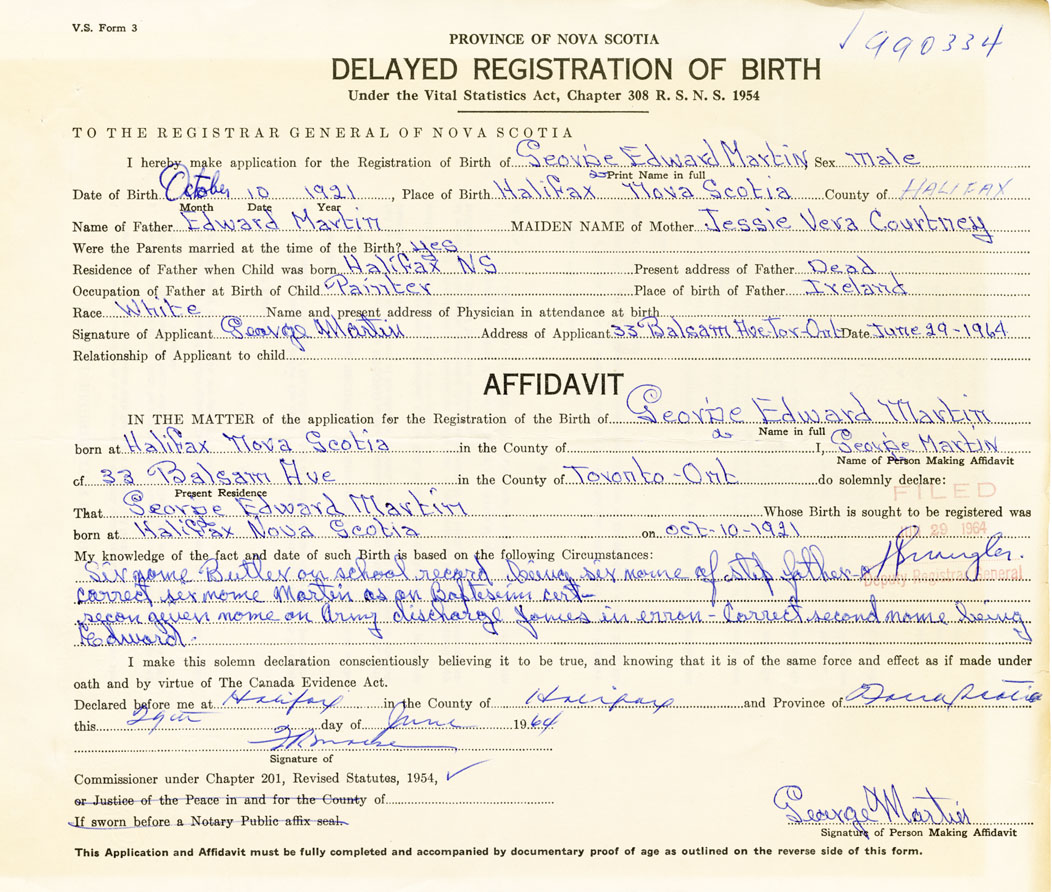 V.S. Form 3
990334
PROVINCE OF NOVA SCOTIA
DELAYED REGISTRATION OF BIRTH
Under the Vital Statistics Act, Chapter 308 R. S. N. S. 1954
TO THE REGISTRAR GENERAL OF NOVA SCOTIA
I hereby make application for the Registration of Birth of George Edward Martin, Sex Male
Print Name in full
Date of Birth October 10 1921, Place of Birth Halifax Nova Scotia County of HALIFAX
Month Date Year
Name of Father Edward Martin MAIDEN NAME of Mother Jessie Vera Courtney
Were the Parents married at the time of the Birth? yes
Residence of Father when Child was born Halifax NS Present address of Father Dead
Occupation of Father at Birth of Child Painter Place of birth of Father Ireland
Race White Name and present address of Physician in attendance at birth
Signature of Applicant George Martin Address of Applicant 33 Balsam Ave-Tor-Ont Date June 29-1964
Relationship of Applicant to child
AFFIDAVIT
IN THE MATTER of the application for the Registration of the Birth of George Edward Martin
Name in full
born at Halifax Nova Scotia in the County of I, George Martin
Name of Person Making Affidavit
of 33 Balsam Ave in the County of Toronto-Ont do solemnly declare:
Present Residence
FILED
That George Edward Martin Whose Birth is sought to be registered was
born at Halifax Nova Scotia on Oct-10-1921
29 1964
My knowledge of the fact and date of such Birth is based on the following Circumstances:
Deputy Registrar General
Sir name Butler on school record being sir name of step father
correct sir name Martin as on Baptesim cert-
secon given name on Army discharge James in erron - Correct second name being
Edward.
I make this solemn declaration conscientiously believing it to be true, and knowing that it is of the same force and effect as if made under
oath and by virtue of The Canada Evidence Act.
Declared before me at Halifax in the County of Halifax and Province of Nova Scotia
this 29th day of June 1964
Signature of
Commissioner under Chapter 201, Revised Statutes, 1954, ✓
or Justice of the Peace in and for the County of
If sworn before a Notary Public affix seal.
George Martin
Signature of Person Making Affidavit
This Application and Affidavit must be fully completed and accompanied by documentary proof of age as outlined on the reverse side of this form.